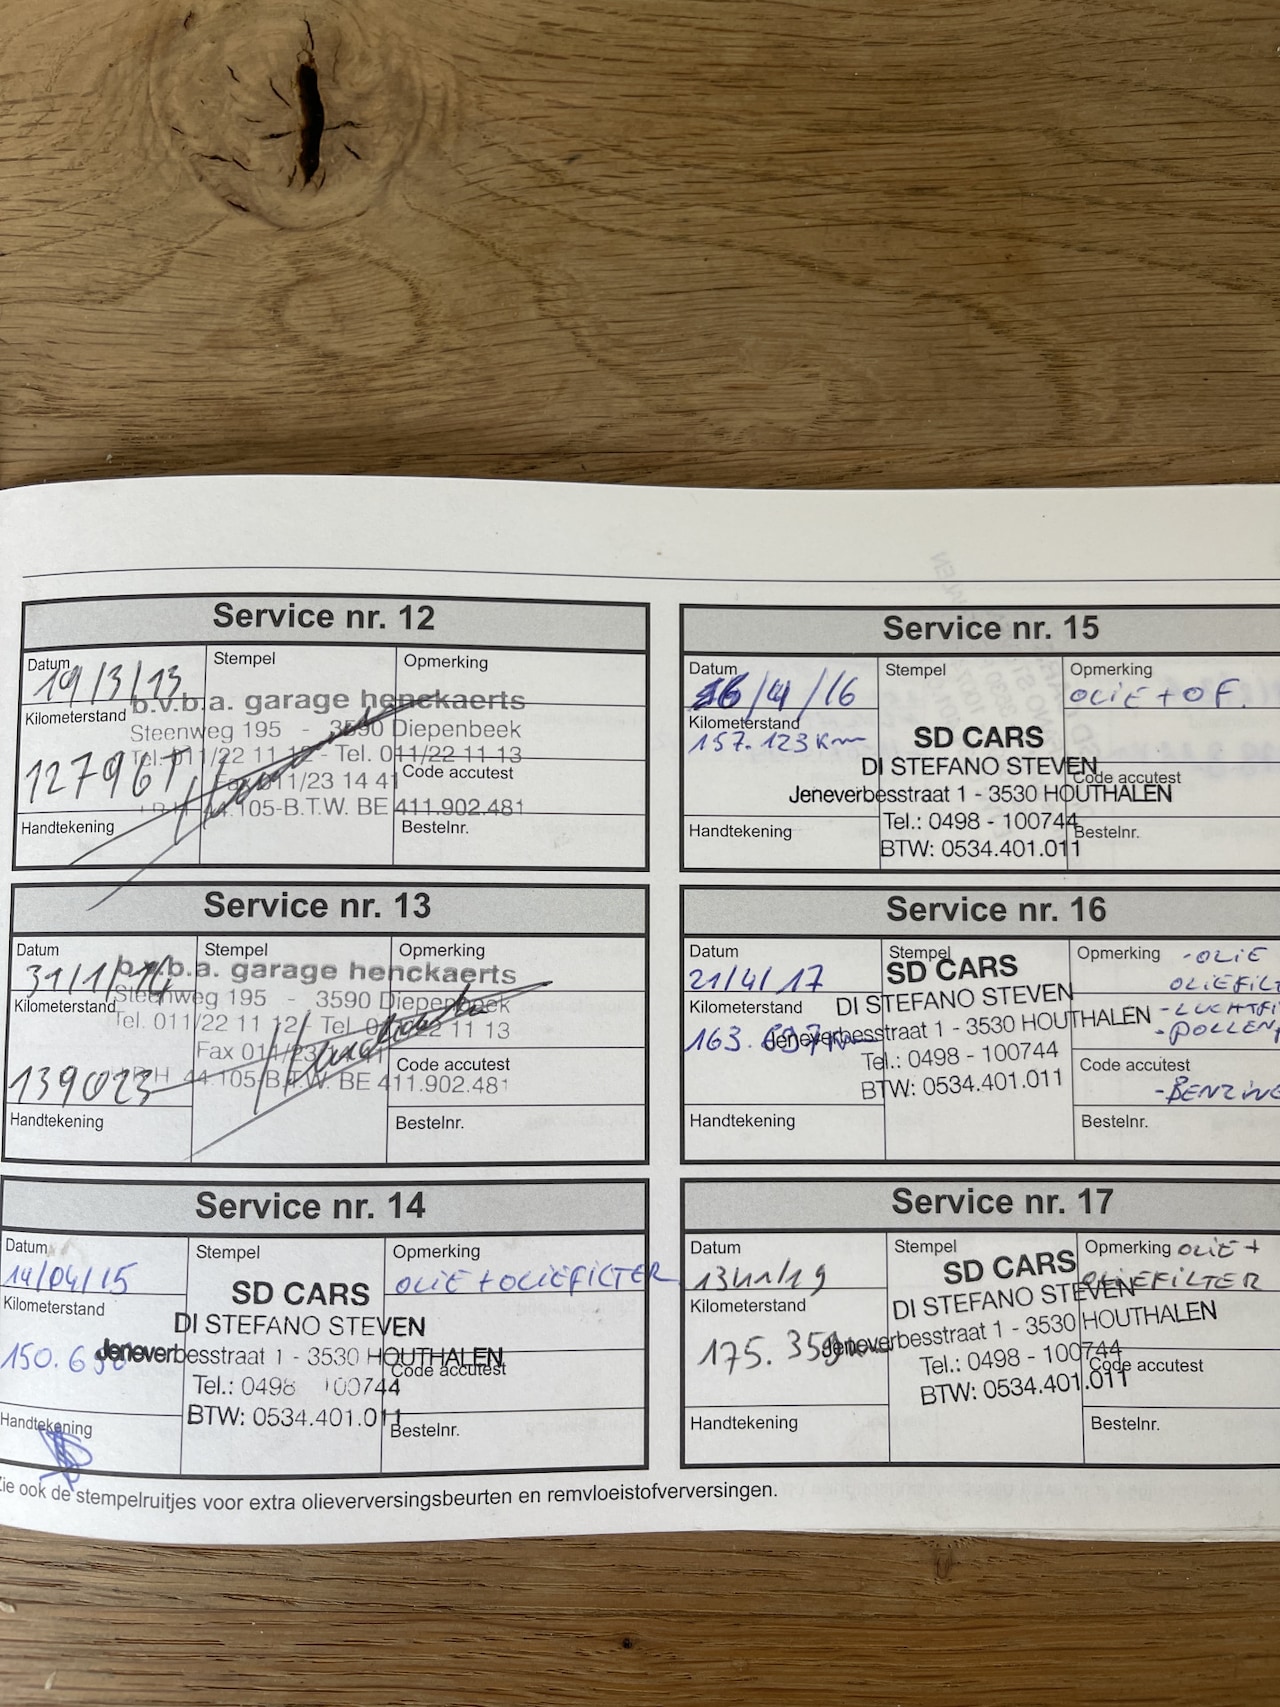 Service nr. 12
Datum
19/3/13
Stempel
Opmerking
b.v.b.a. garage henckaerts
Kilometerstand
Steenweg 195 - 3590 Diepenbeek
Tel. 011/22 11 12 - Tel. 011/22 11 13
Code accutest
Fax 011/23 14 41
44.105-B.T.W. BE 411.902.481
Handtekening
Bestelnr.
Service nr. 13
Datum
31/1/14
Stempel
Opmerking
b.v.b.a. garage henckaerts
Kilometerstand
Steenweg 195 - 3590 Diepenbeek
Tel. 011/22 11 12 - Tel. 011/22 11 13
Fax 011/23
Code accutest
139023
44.105-B.T.W. BE 411.902.481
Handtekening
Bestelnr.
Service nr. 14
Datum
14/04/15
Stempel
Opmerking
OLIE + OLIEFILTER
Kilometerstand
SD CARS
DI STEFANO STEVEN
150.6
Jeneverbesstraat 1 - 3530 HOUTHALEN
Code accutest
Tel.: 0498 100744
BTW: 0534.401.011
Handtekening
Bestelnr.
Service nr. 15
Datum
/4/16
Stempel
Opmerking
OLIE + OF.
Kilometerstand
157.123 Km
SD CARS
DI STEFANO STEVEN
Code accutest
Jeneverbesstraat 1 - 3530 HOUTHALEN
Tel.: 0498 - 100744
Handtekening
Bestelnr.
BTW: 0534.401.011
Service nr. 16
Datum
21/4/17
Stempel
Opmerking
- OLIE
OLIEFILT
- LUCHTFI
- POLLEN
SD CARS
DI STEFANO STEVEN
Kilometerstand
163.
Jeneverbesstraat 1 - 3530 HOUTHALEN
Tel.: 0498 - 100744
Code accutest
BTW: 0534.401.011
- BENZINE
Handtekening
Bestelnr.
Service nr. 17
Datum
13/11/19
Stempel
Opmerking
OLIE +
OLIEFILTER
SD CARS
DI STEFANO STEVEN
Kilometerstand
175.359
Jeneverbesstraat 1 - 3530 HOUTHALEN
Tel.: 0498 - 100744
Code accutest
BTW: 0534.401.011
Handtekening
Bestelnr.
Zie ook de stempelruitjes voor extra olieverversingsbeurten en remvloeistofverversingen.